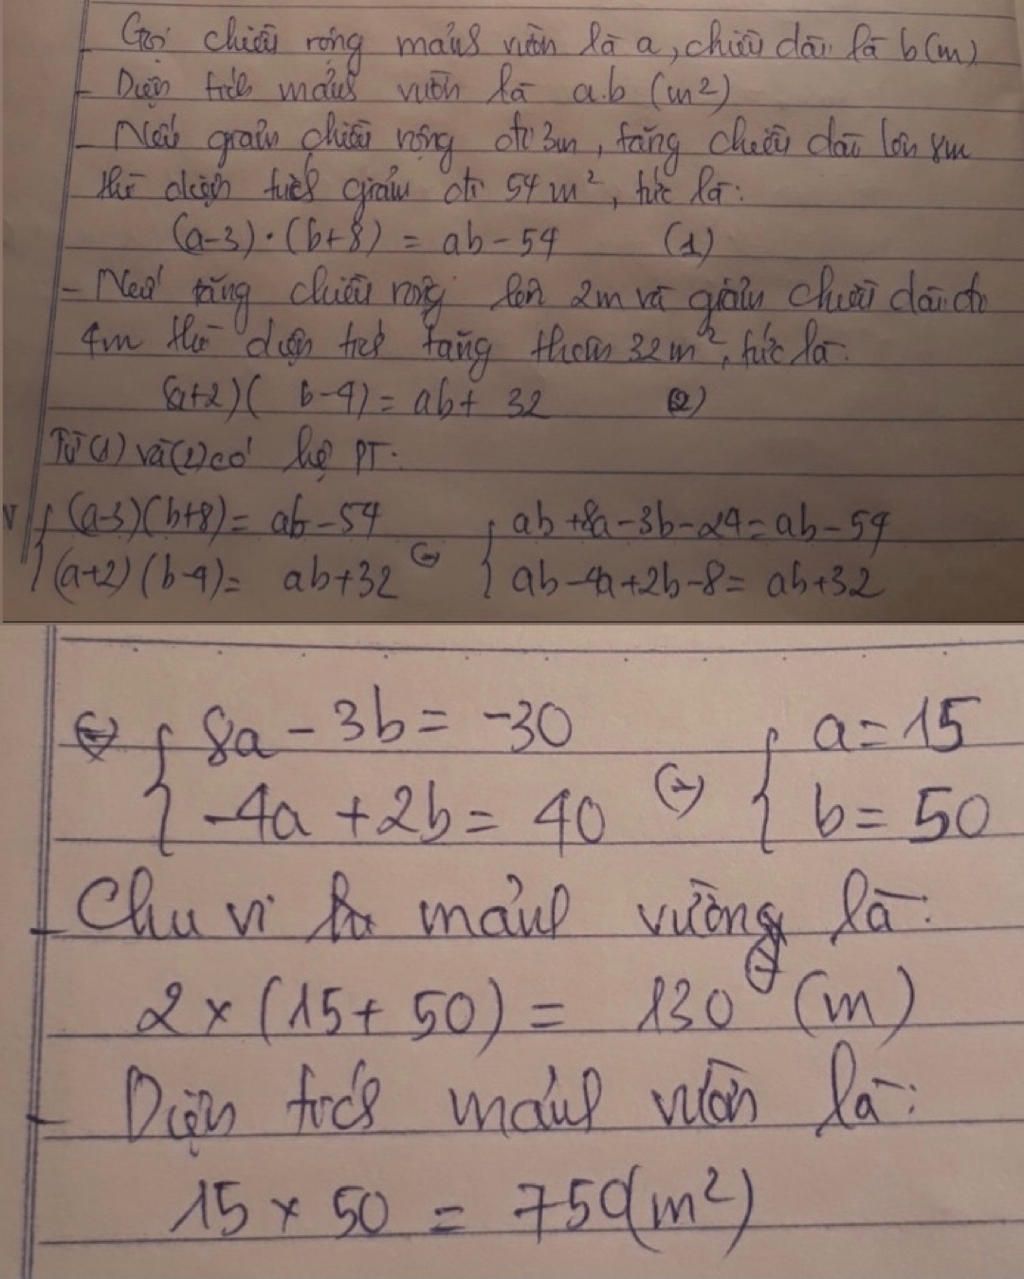 - Gọi chiều rộng mảnh vườn là a, chiều dài là b (m)
- Diện tích mảnh vườn là a.b (m²)
- Nếu giảm chiều rộng đi 3m, tăng chiều dài lên 8m
thì diện tích giảm đi 54 m², tức là:
(a-3).(b+8) = ab-54 (1)
- Nếu tăng chiều rộng lên 2m và giảm chiều dài đi
4m thì diện tích tăng thêm 32m², tức là:
(a+2)( b-4) = ab+ 32 (2)
Từ (1) và (2) có hệ PT:
{ (a-3)(b+8) = ab-54 <=> { ab+8a-3b-24 = ab-54
(a+2)(b-4) = ab+32 ab-4a+2b-8 = ab+32
<=> { 8a-3b = -30 <=> { a = 15
-4a+2b = 40 b = 50
- Chu vi mảnh vường là:
2x(15+50) = 130 (m)
- Diện tích mảnh vườn là:
15 x 50 = 750(m²)